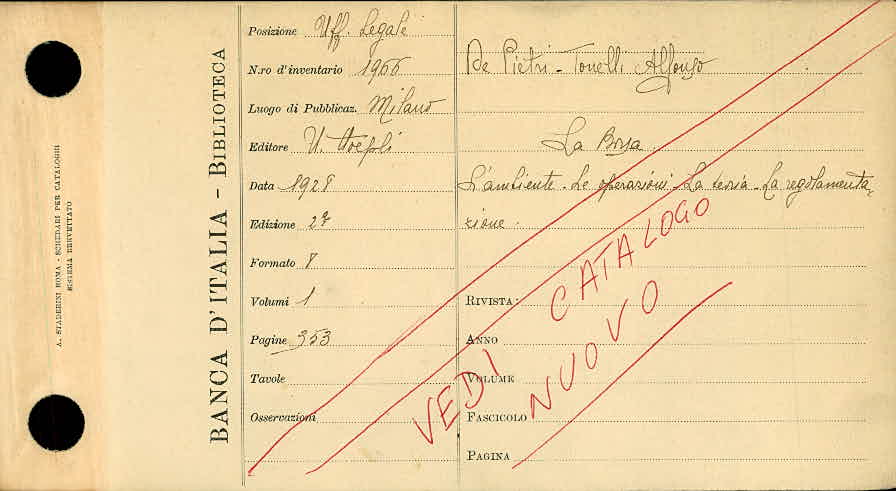 A. STADERINI ROMA - SCHEDARI PER CATALOGHI
SISTEMA BREVETTATO
BANCA D'ITALIA - BIBLIOTECA
Posizione Uff. Legale
N.ro d'inventario 1966
Luogo di Pubblicaz. Milano
Editore U. Hoepli
Data 1928
Edizione 2ª
Formato 8
Volumi 1
Pagine 353
Tavole
Osservazioni
De Pietri - Tonelli Alfonso
La Borsa
L'ambiente - Le operazioni - La teoria - La regolamenta-
zione.
RIVISTA:
ANNO
VOLUME
FASCICOLO
PAGINA
VEDI CATALOGO
NUOVO